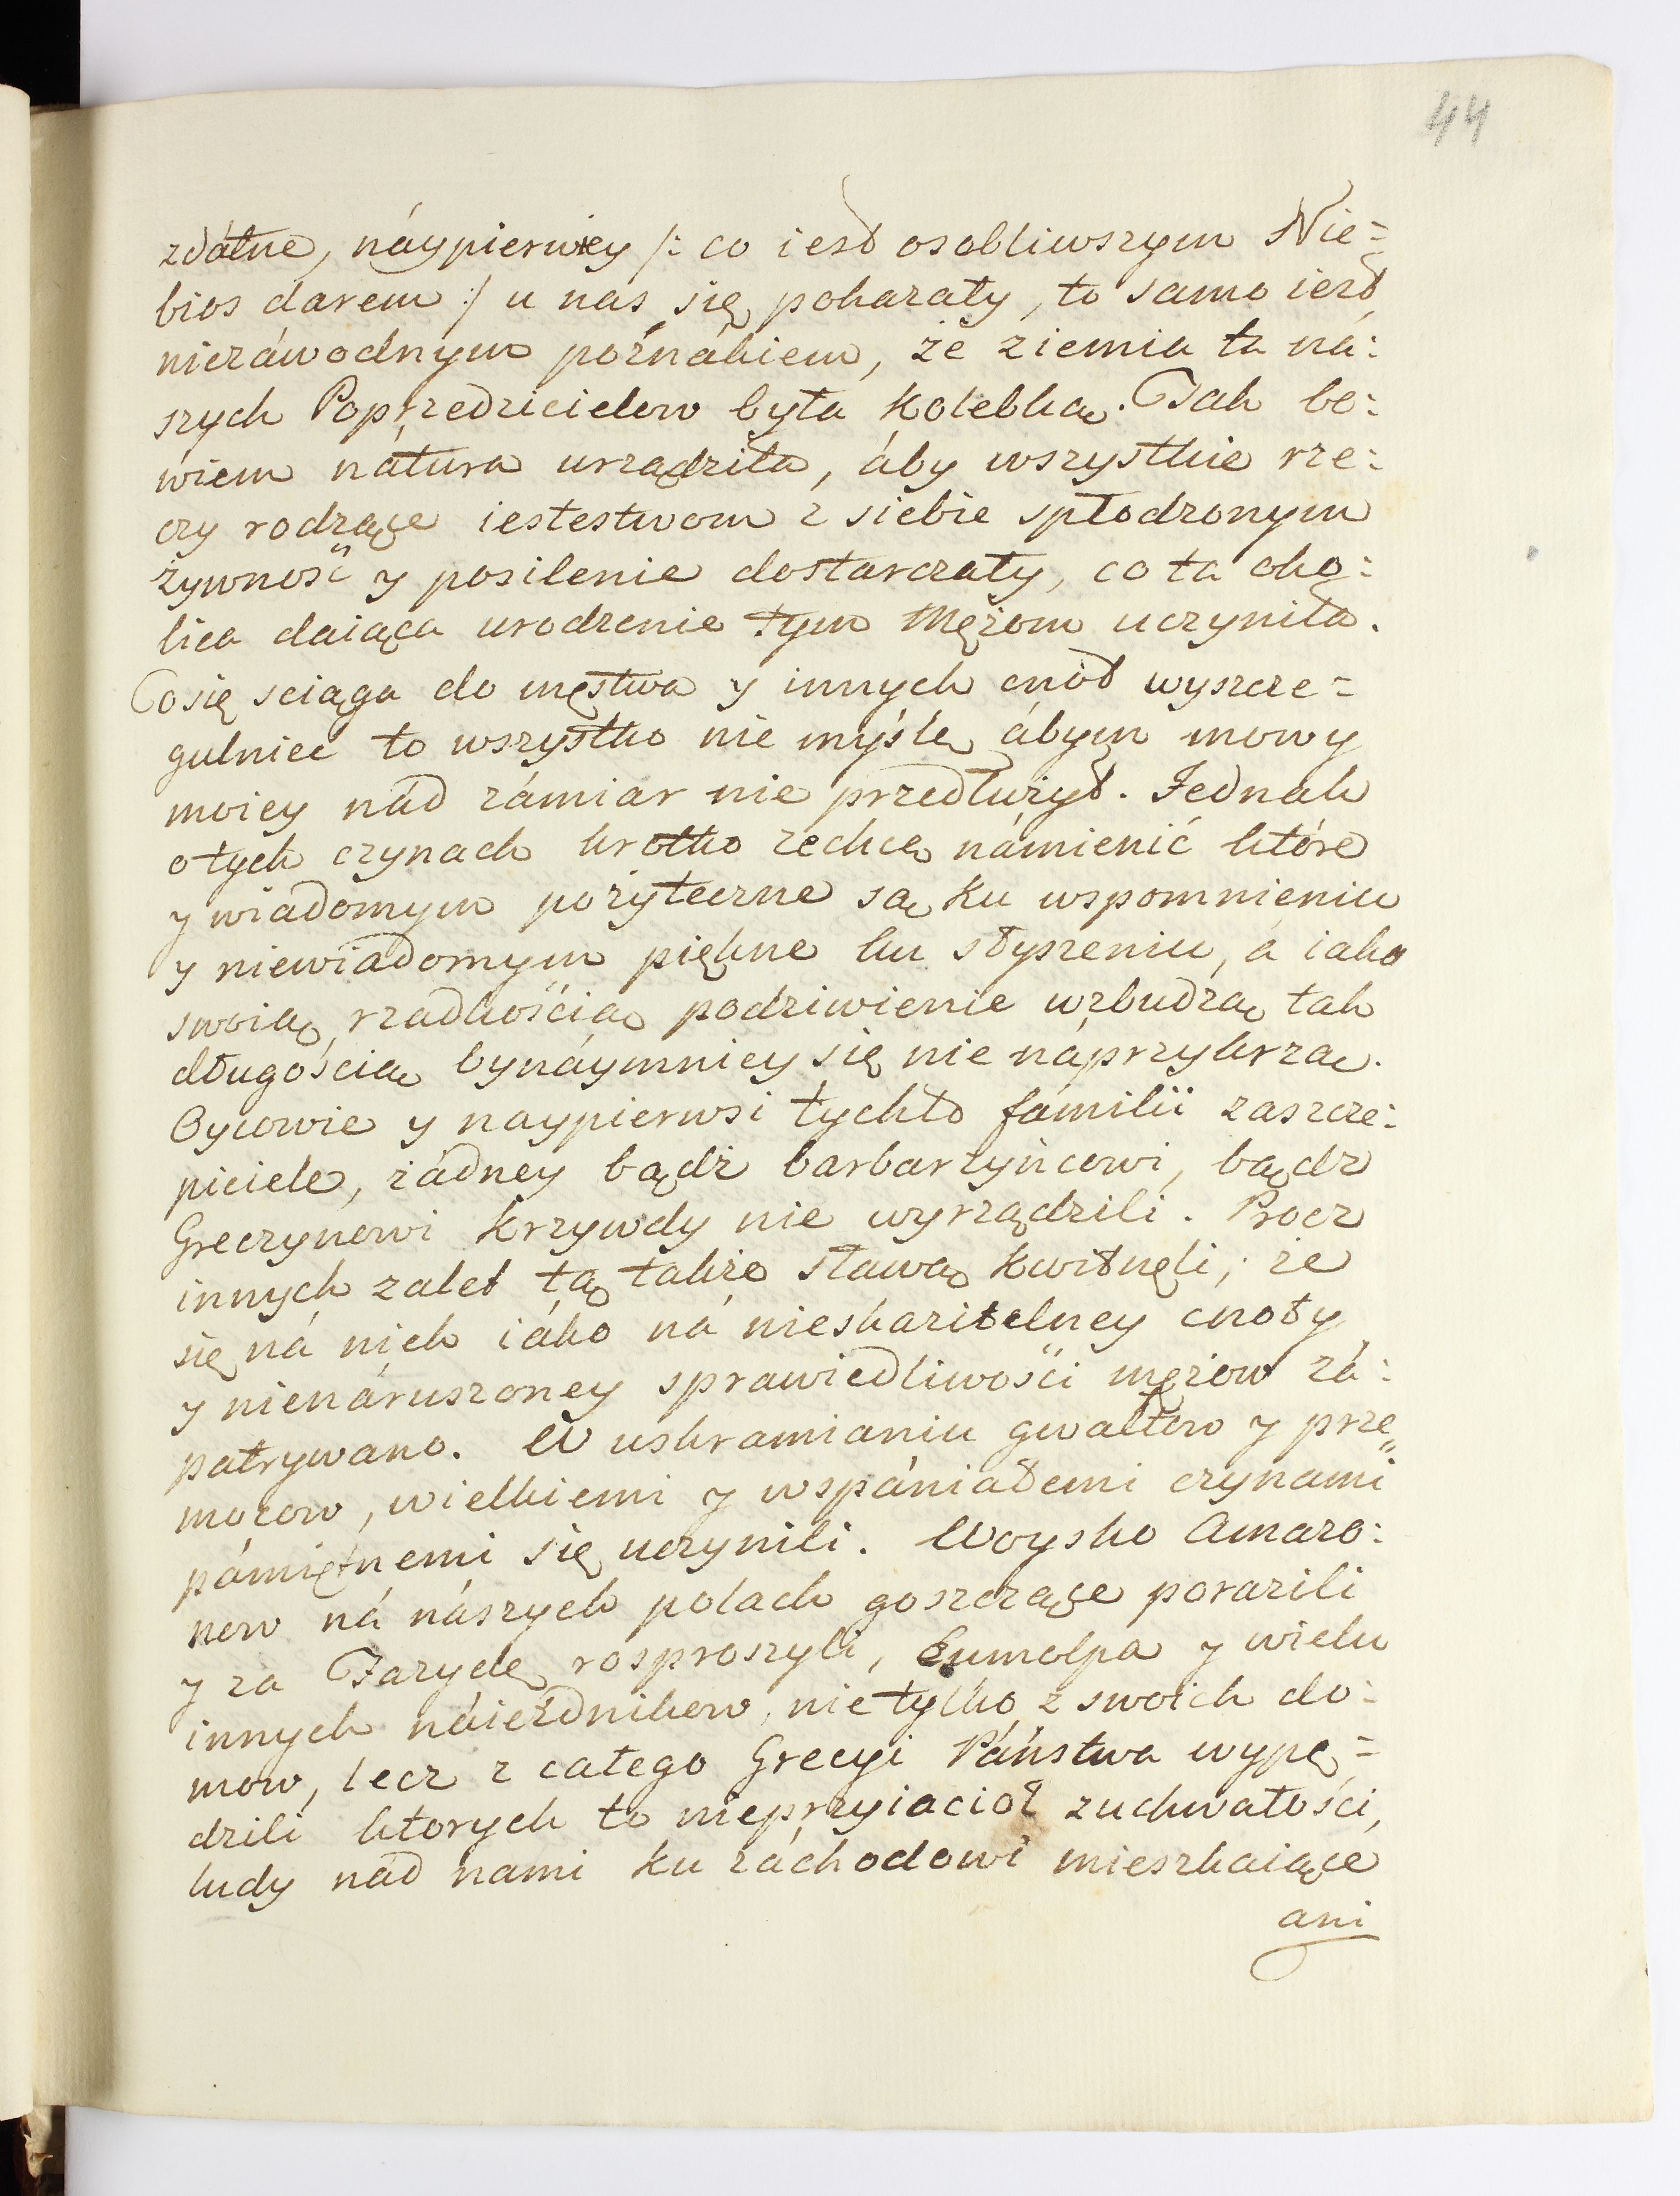 44
zdátne, náypierwiey /: co iest osobliwszym Nie=
bios darem :/ u nas się pokazały, to samo iest
niezáwodnym poznákiem, że ziemia ta ná:
szych Poprzedzicielow była kolebką. Tak bo:
wiem nátura urządziła, áby wszystkie rze:
czy rodzące iestestwom z siebie spłodzonym
żywność y posilenie dostarczały, co ta oko:
lica daiąca urodzenie tym Mężom uczyniła.
Co się sciąga do męstwa y innych cnót wyszcze=
gulniec to wszystko nie myślę ábym mowy
moiey nád zámiar nie przedłużył. Jednak
o tych czynach krotko zechcę námienić które
y wiadomym pożyteczne są ku wspomnieniu
y niewiadomym piękne ku słyszeniu, á iako
swoią rzadkością podziwienie wzbudzą tak
długością bynáymniey się nie náprzykrzą.
Oycowie y naypierwsi tychto familii zaszcze:
piciele, żádney bądź barbarzyńcowi, bądz
Greczynowi krzywdy nie wyrządzili. Procz
innych zalet tą także sławą kwitnęli; że
się ná nich iáko ná nieskazitelney cnoty
y nienáruszoney sprawiedliwości mężow zá:
patrywano. W uskramianiu gwałtow y prze„
mocow, wielkiemi y wspániałemi czynami
pámiętnemi się uczynili. Woysko Amazo:
now ná nászych polach goszczące porazili
y za Fazydę rosproszyli, Eumolpa y wielu
innych náiezdnikow, nie tylko z swoich do:
mow, lecz z całego Grecyi Páństwa wypę=
dzili ktorych to nieprzyiaciół zuchwałości,
ludy nád nami ku záchodowi mieszkaiące
ani